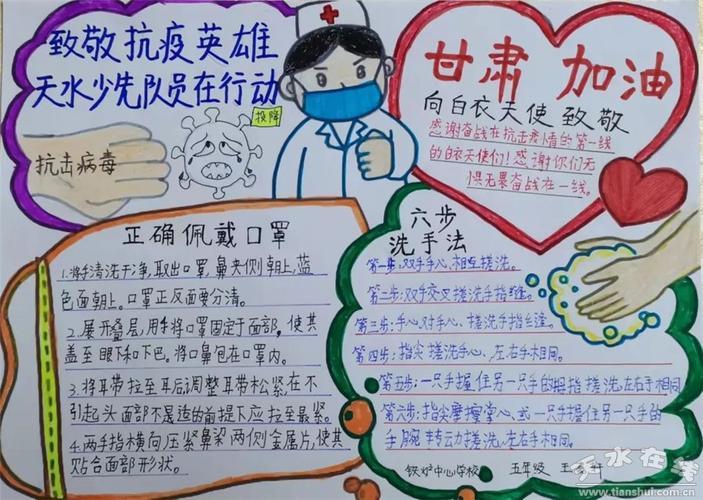 致敬抗疫英雄
天水少先队员在行动
投降
抗击病毒
甘肃 加油
向白衣天使致敬
感谢奋战在抗击疫情的第一线
的白衣天使们！感谢你们无
惧无畏奋战在一线。
正确佩戴口罩
1.将手清洗干净，取出口罩，鼻夹侧朝上，蓝
色面朝上。口罩正反面要分清。
2.展开叠层，用手将口罩固定于面部，使其
盖至眼下和下巴。将口鼻包在口罩内。
3.将耳带拉至耳后，调整耳带松紧，在不
引起头面部不是适的前提下应拉至最紧。
4.两手指横向压紧鼻梁两侧金属片，使其
贴合面部形状。
六步
洗手法
第一步：双手手心，相互搓洗。
第二步：双手交叉搓洗手指缝。
第三步：手心对手心、搓洗手指缝。
第四步：指尖搓洗手心、左右手相同。
第五步：一只手握住另一只手的拇指搓洗，左右手相同
第六步：指尖摩擦掌心、或一只手握住另一只手的
手腕转动搓洗，左右手相同。
铁炉中心学校 五年级 王
天水在线
www.tianshui.com.cn